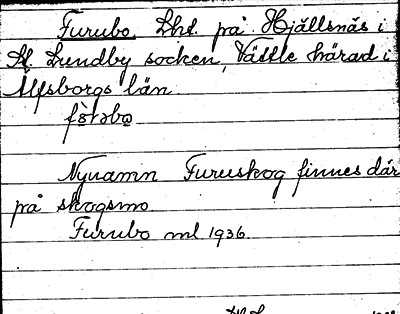 Furubo. Lht. på Hjällsnäs i
St. Lundby socken, Vättle härad i
Älfsborgs län
Nynamn Furuskog finnes där
på skogsmo
Furubo ml 1936.